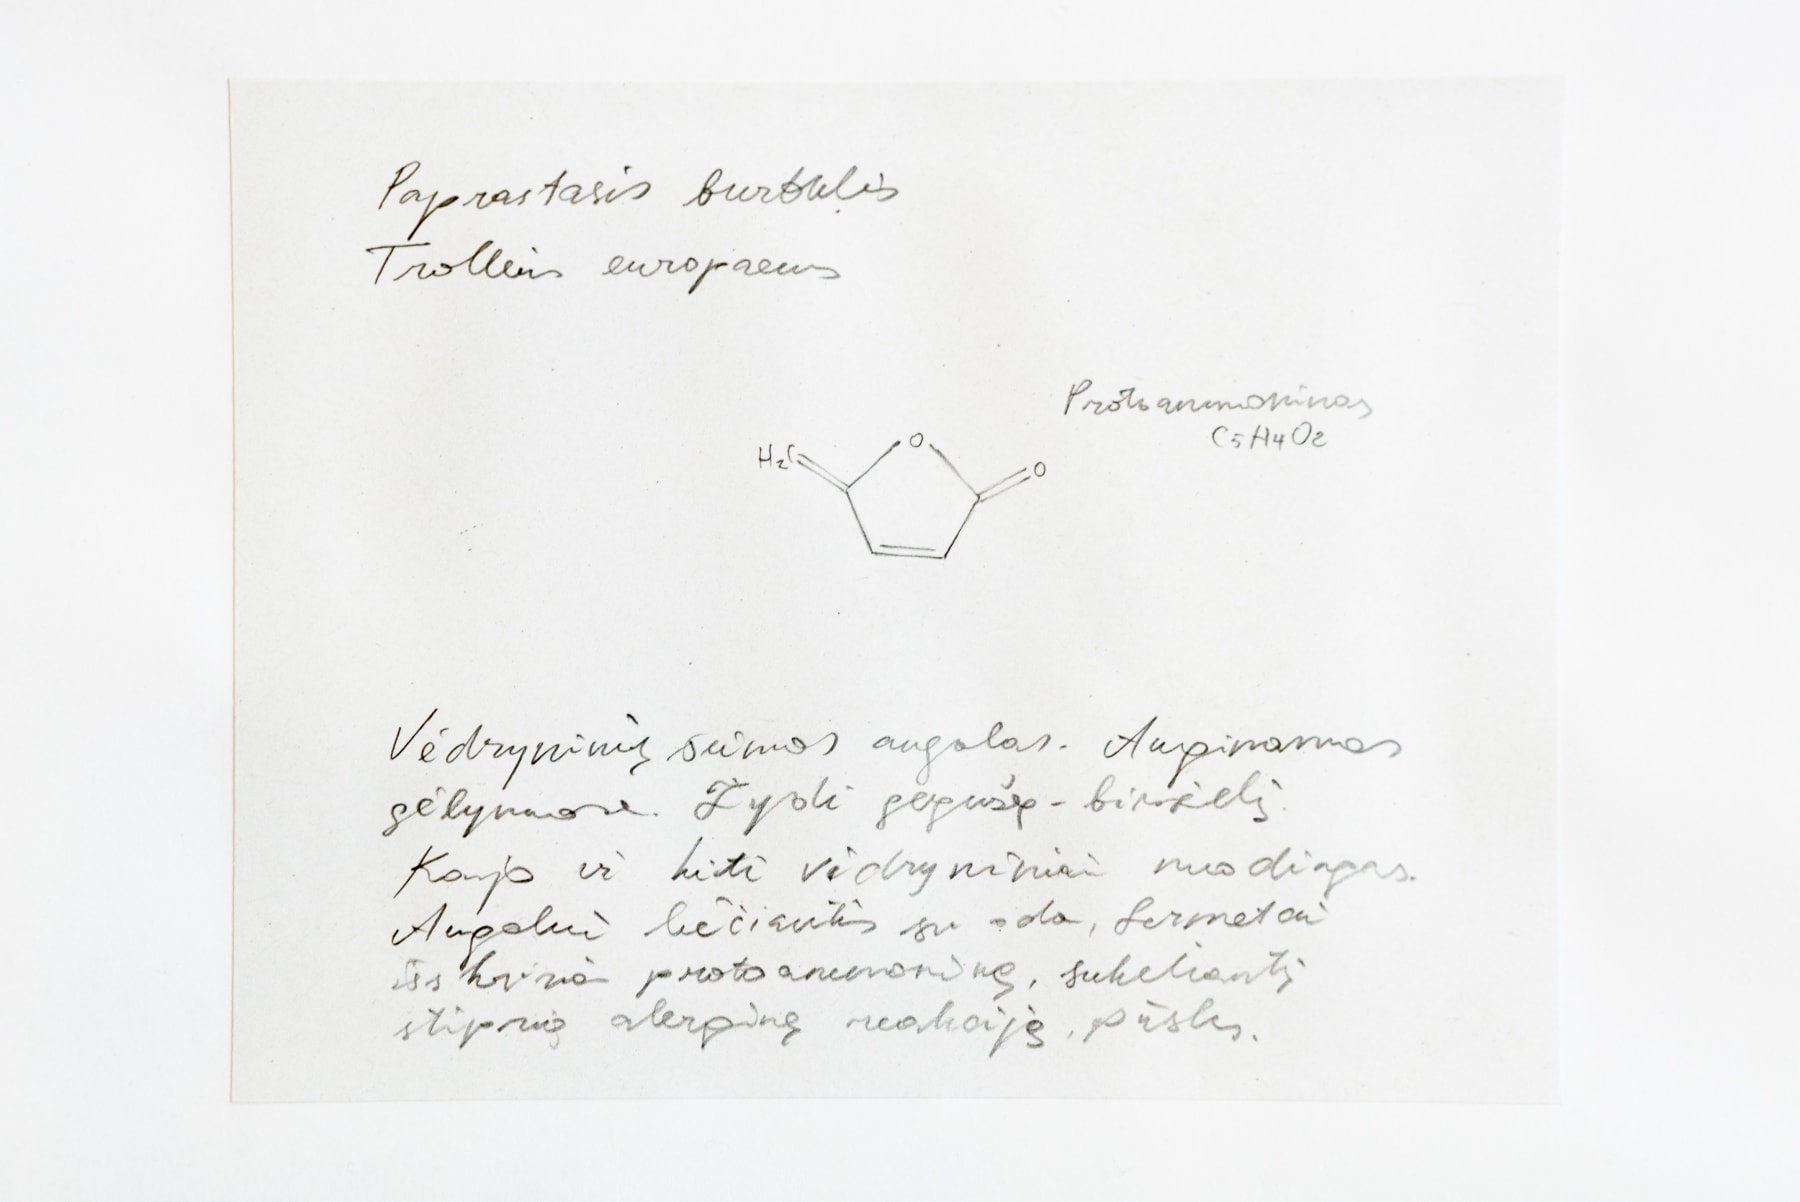 Paprastasis burbulis
Trollius europaeus
Protoanemoninas
C5H4O2
O
H2C
O
Vėdryninių šeimos augalas. Auginamas
gėlynuose. Žydi gegužę - birželį.
Kaip ir kiti vėdryniniai nuodingas.
Augalui liečiantis su oda, fermetai
išskiria protoanemoniną, sukeliantį
stiprią alerginę reakciją, pūsles.